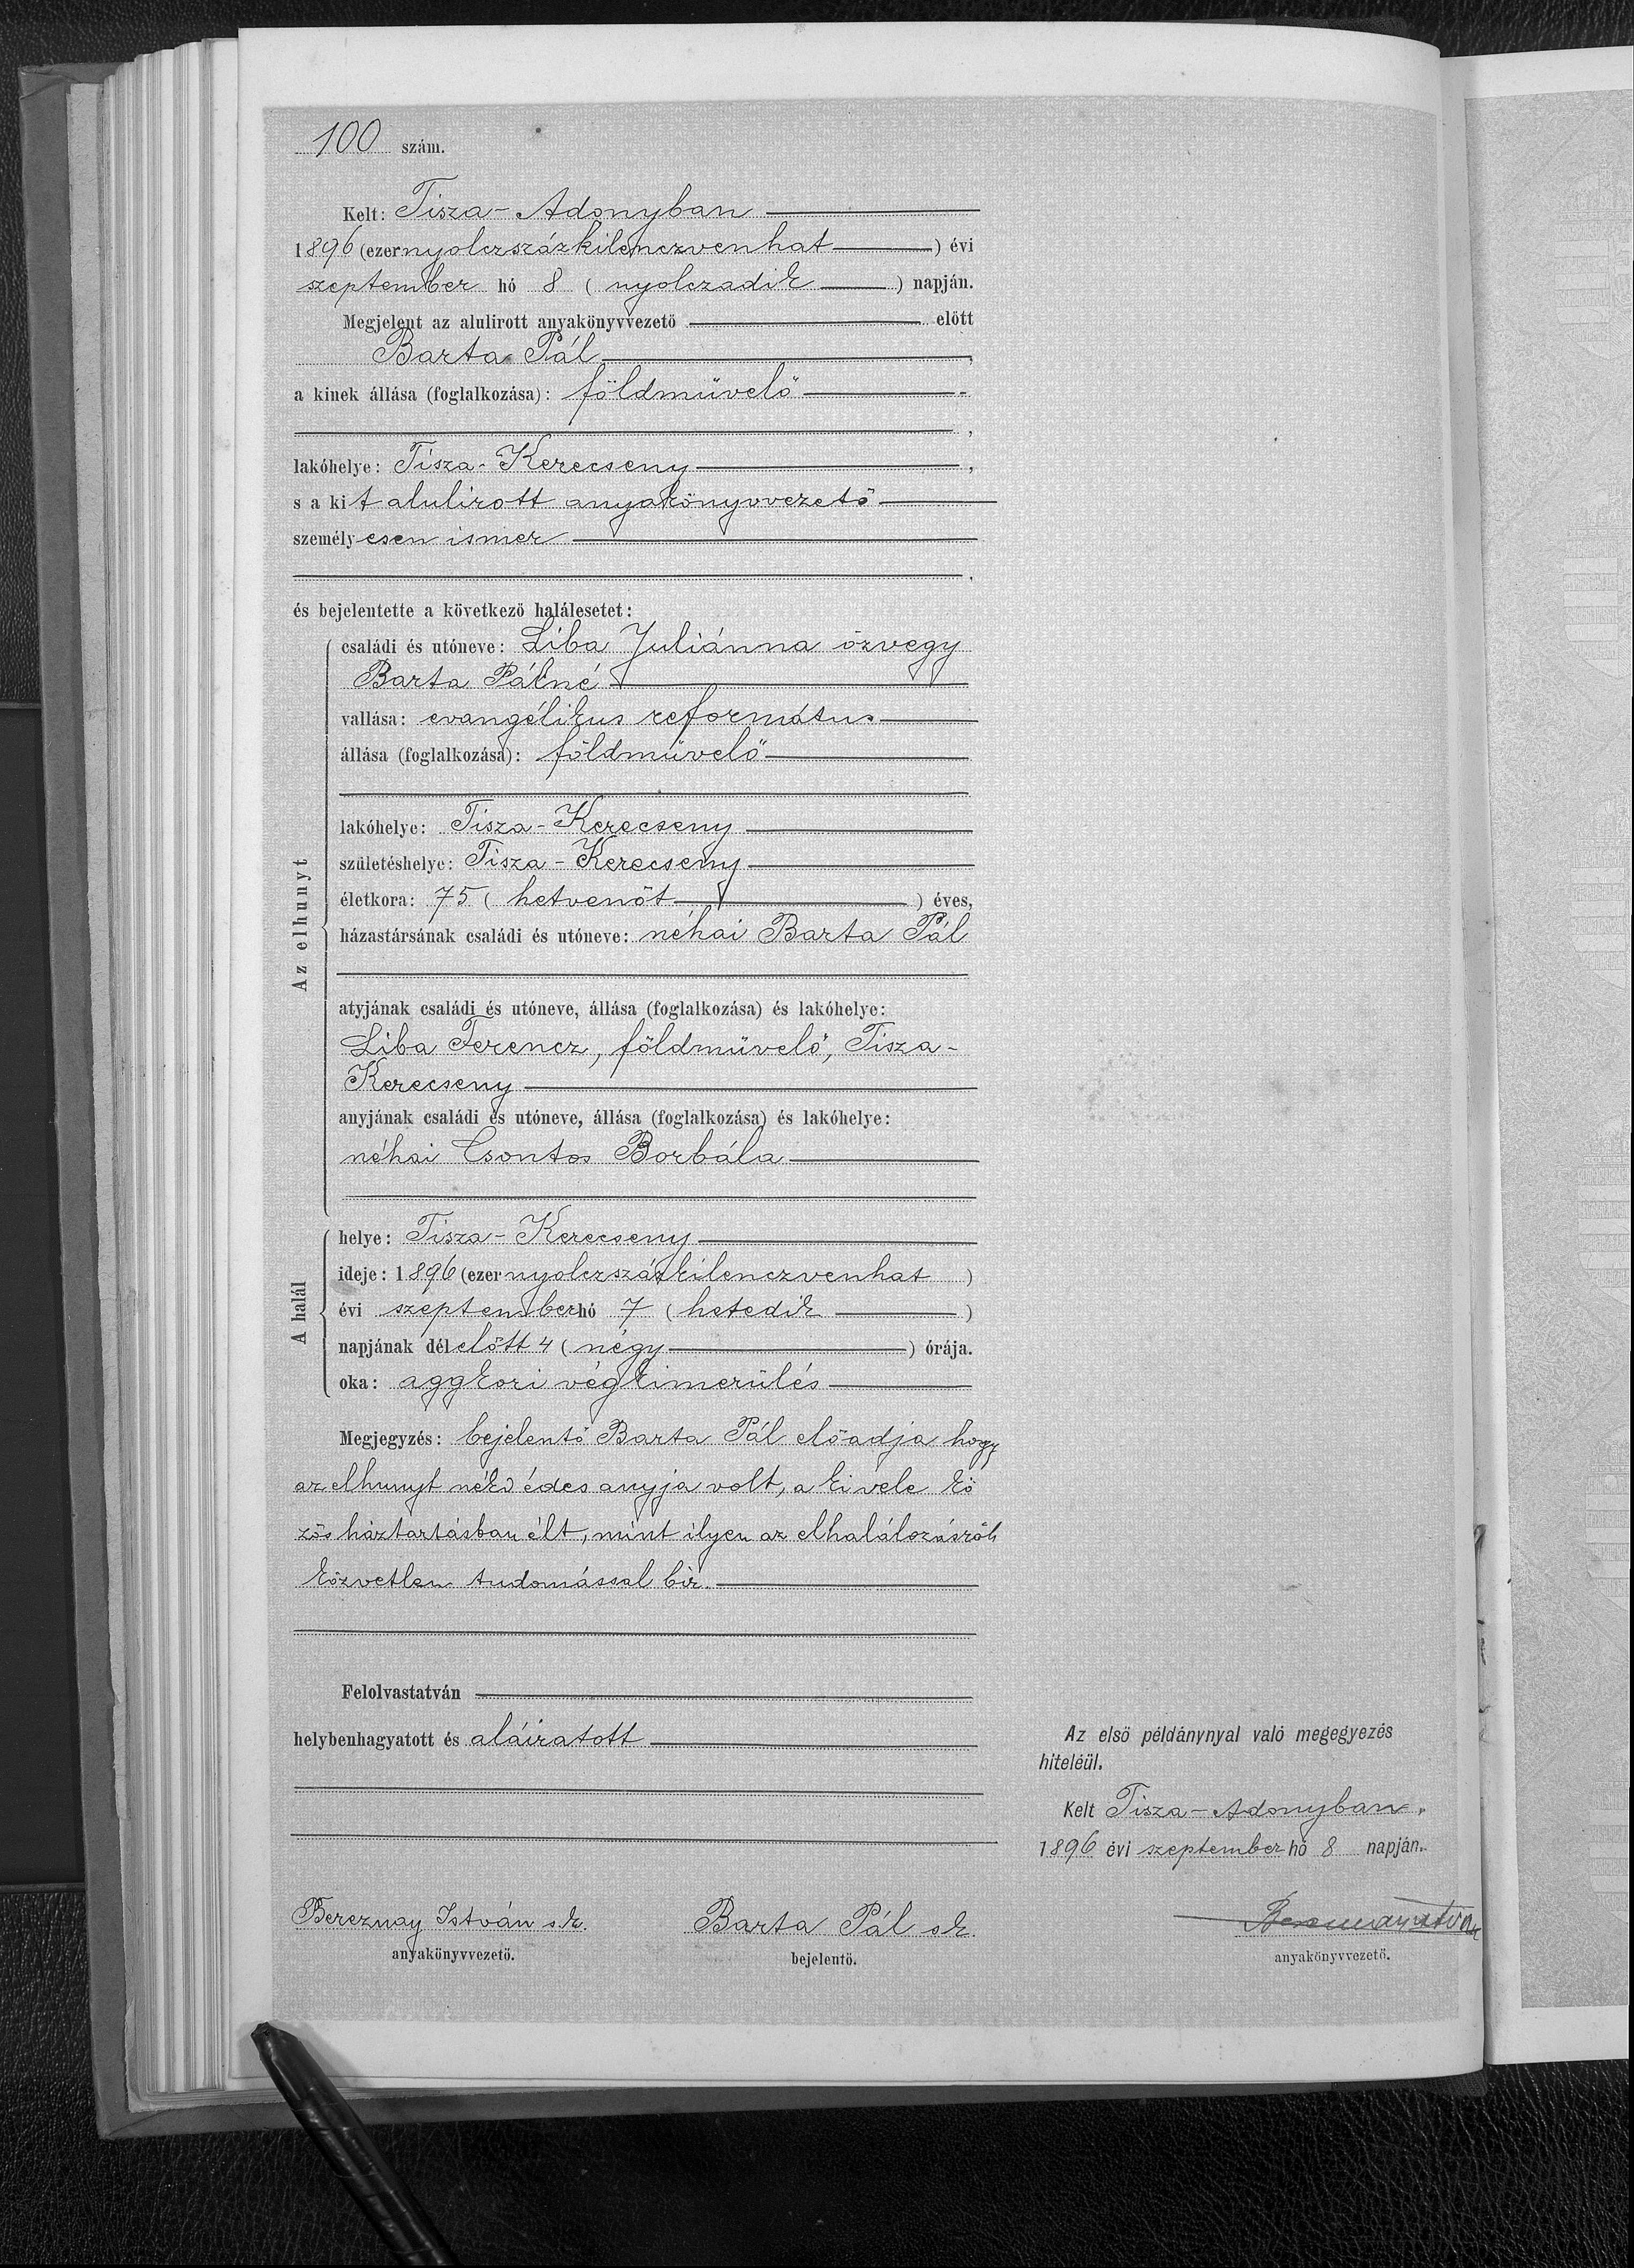 100 szám.
Kelt: Tisza-Adonyban
1896 (ezernyolczszázkilenczvenhat) évi
szeptember hó 8 (nyolczadik) napján.
Megjelent az alulírott anyakönyvvezető előtt
Barta Pál,
a kinek állása (foglalkozása): földmüvelő
lakóhelye: Tisza-Kerecseny,
s a kit alulirott anyakönyvvezető
személyesen ismer
és bejelentette a következő halálesetet:
Az elhunyt
családi és utóneve: Liba Juliánna özvegy
Barta Pálné
vallása: evangélikus református
állása (foglalkozása): földmüvelő
lakóhelye: Tisza-Kerecseny
születéshelye: Tisza-Kerecseny
életkora: 75 (hetvenöt) éves,
házastársának családi és utóneve: néhai Barta Pál
atyjának családi és utóneve, állása (foglalkozása) és lakóhelye:
Liba Ferencz, földmüvelő, Tisza-
Kerecseny
anyjának családi és utóneve, állása (foglalkozása) és lakóhelye:
néhai Csontos Borbála
A halál
helye: Tisza-Kerecseny
ideje: 1896 (ezernyolczszázkilenczvenhat)
évi szeptember hó 7 (hetedik)
napjának délelőtt 4 (négy) órája.
oka: aggkori végkimerülés
Megjegyzés: bejelentő Barta Pál előadja hogy
az elhunyt néki édes anyja volt, a ki vele kö
zös háztartásban élt, mint ilyen az elhalálozásról
közvetlen tudomással bir.
Felolvastatván
helybenhagyatott és aláiratott
Az első példánynyal való megegyezés
hiteléül.
Kelt Tisza-Adonyban,
1896 évi szeptember hó 8 napján.
Bereznay István s.k. Barta Pál sk. Bereznay István
anyakönyvvezető. bejelentő. anyakönyvvezető.